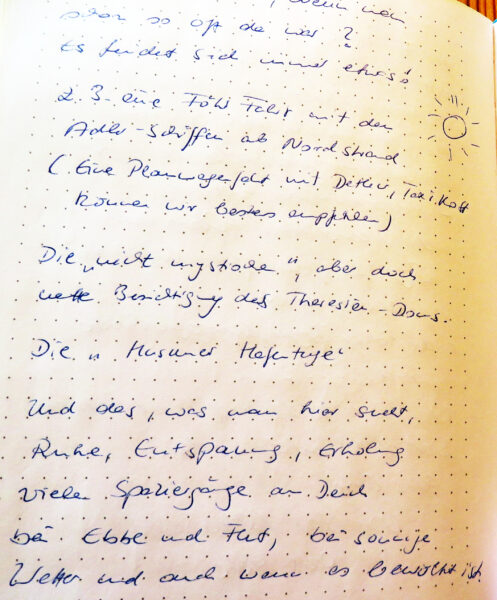 , wenn man
schon so oft da war?
Es findet sich immer etwas!
z.B. eine Föhr Fahrt mit den
Adler-Schiffen ab Nordstrand
(Eine Planwagenfahrt mit Detlev, Taxi Kott
können wir bestens empfehlen)
Die „nicht mystische", aber doch
nette Besichtigung des Theresien-Doms.
Die „Husumer Hafentage"
Und das, was man hier sucht,
Ruhe, Entspannung, Erholung
vielen Spaziergänge am Deich
bei Ebbe und Flut, bei sonnige
Wetter und auch wenn es bewölkt ist